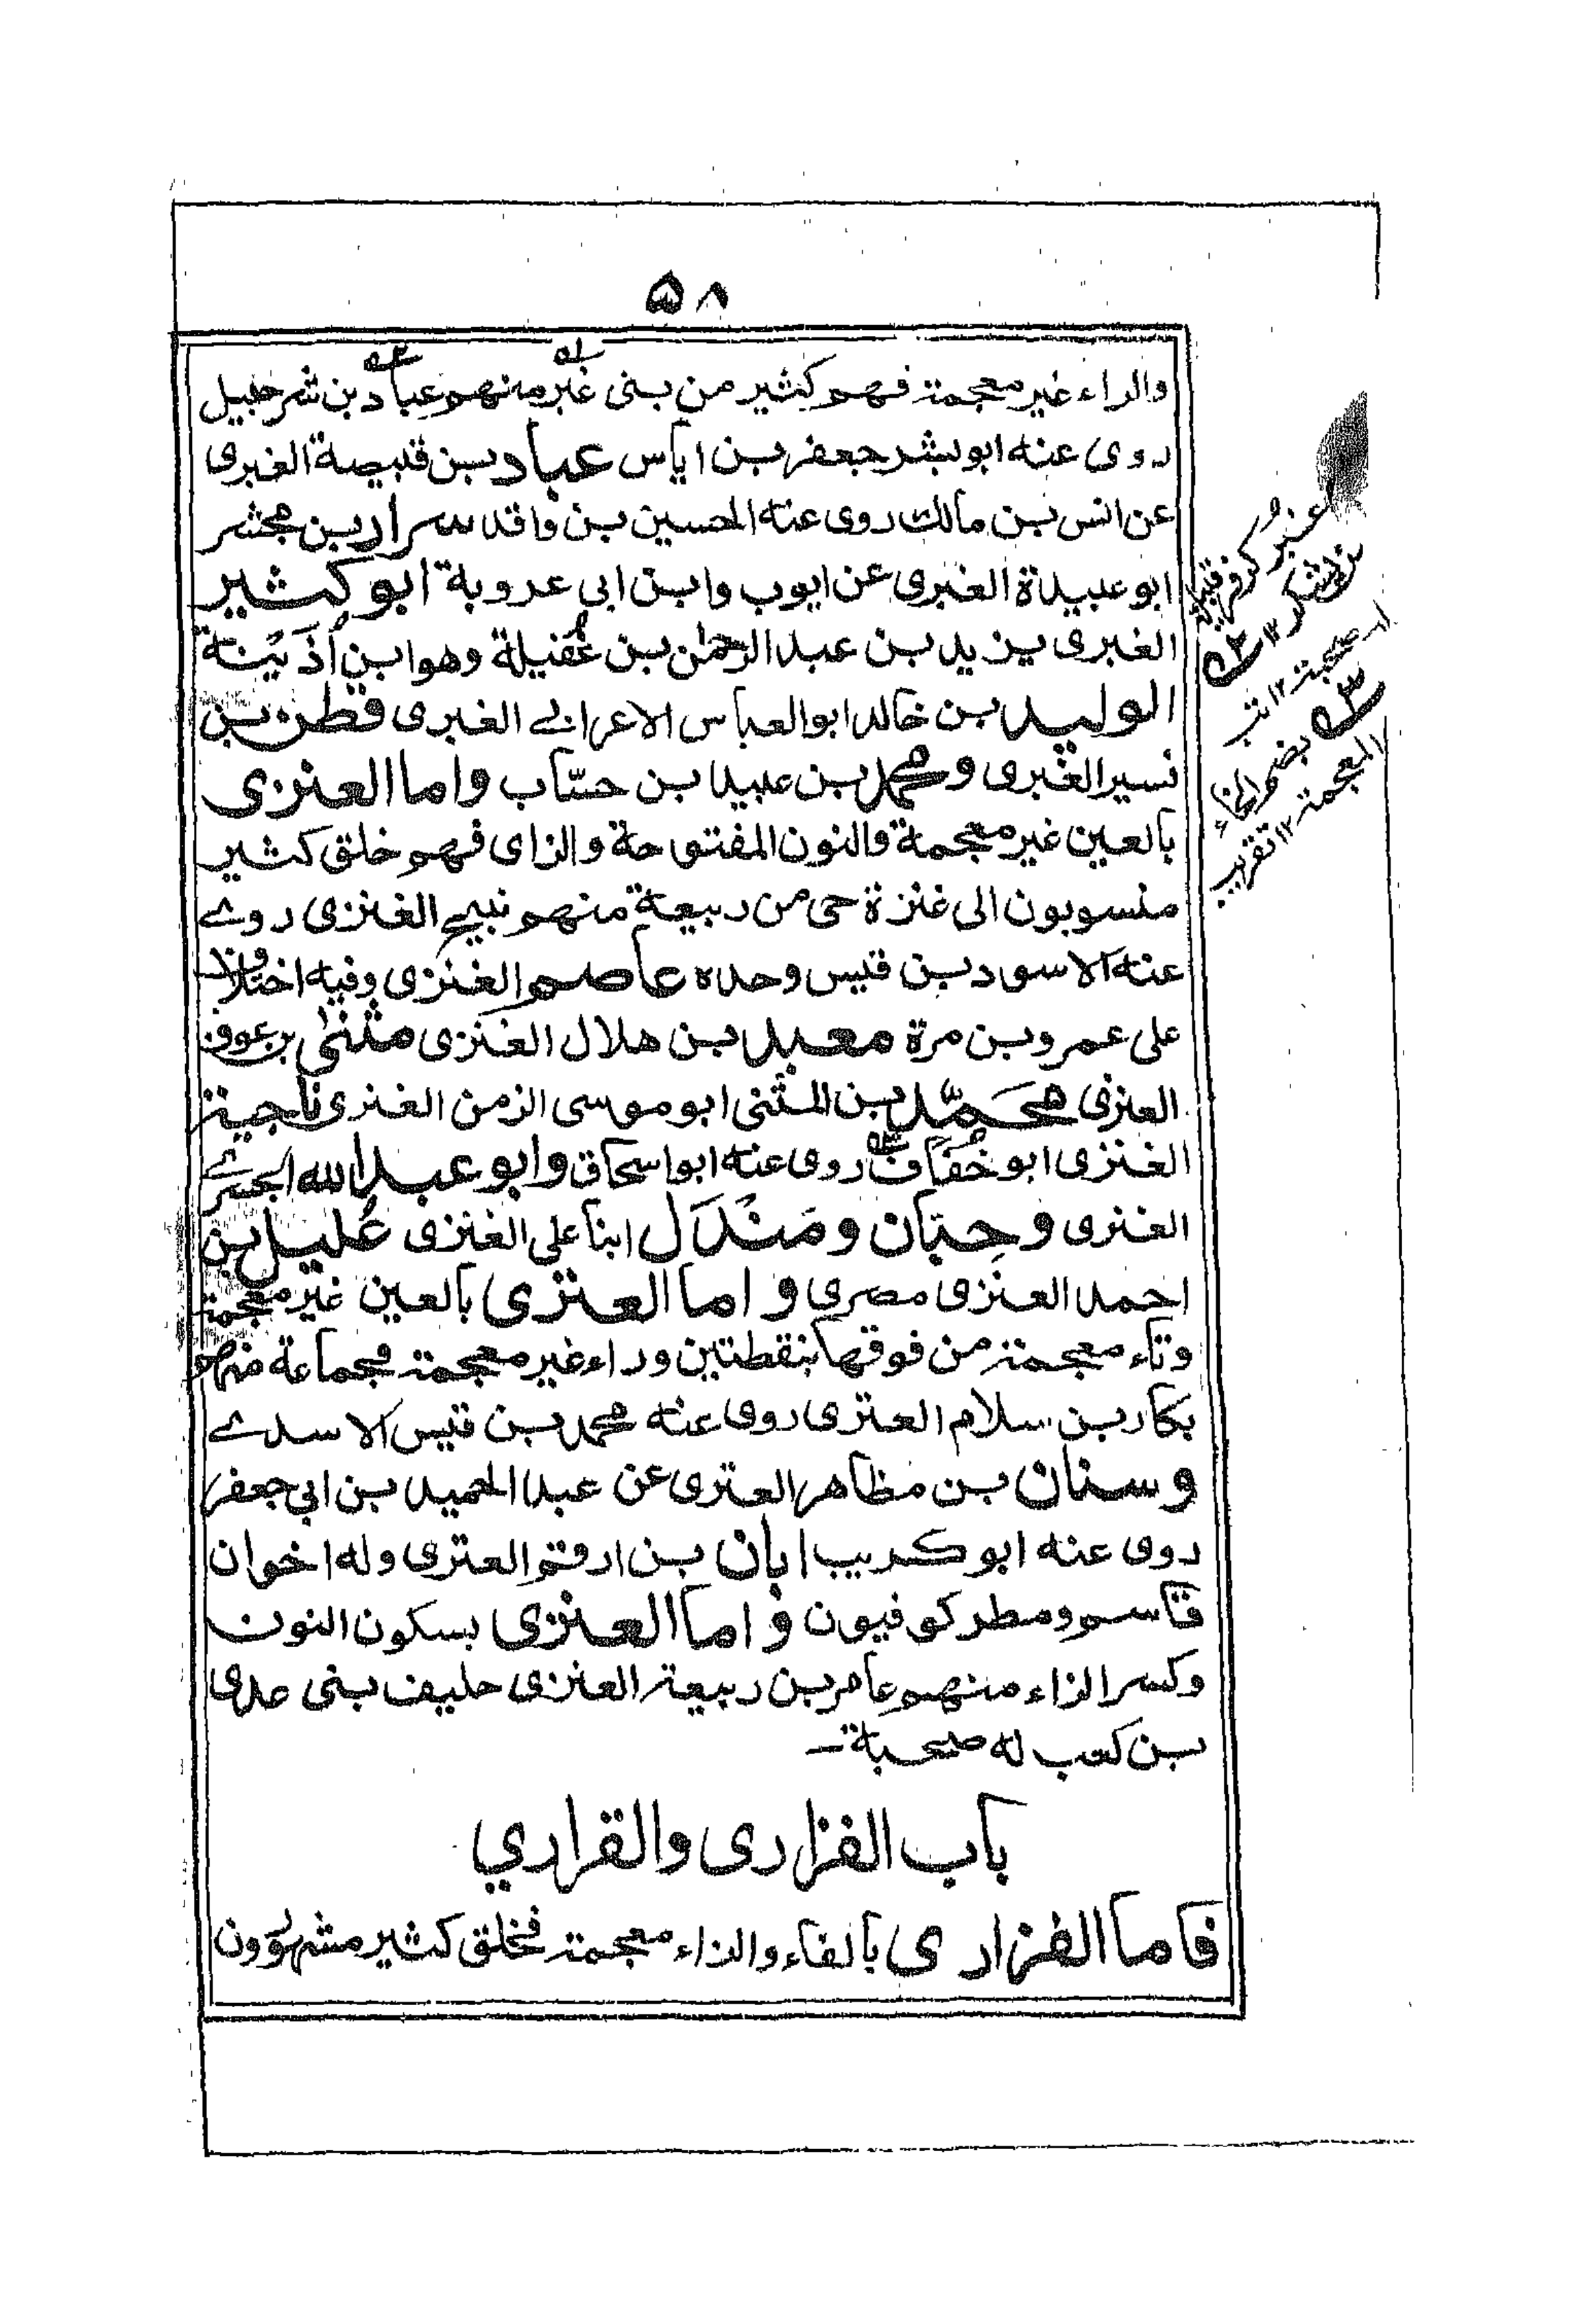 ۵۸
والراء غير معجمة فهم كثير من بنى غبر منهم عباد بن شرحبيل
روى عنه ابو بشر جعفر بن اياس عباد بن قبيصة الغبرى
عن انس بن مالك روى عنه الحسين بن واقد سرار بن مجشر
ابو عبيدة الغبرى عن ايوب وابن ابى عروبة ابو كثير
الغبرى يزيد بن عبد الرحمن بن غفيلة وهو ابن اُذَيْنة
الوليد بن خالد ابو العباس الاعرابے الغبرى قطن بن
نسير الغبرى و محمد بن عبيد بن حسّاب واما العنزى
بالعين غير معجمة والنون المفتوحة والزاى فهم خلق كثير
منسوبون الى عنزة حى من ربيعة منهم نبيح العنزى روے
عنه الاسود بن قيس وحده عاصم العنزى وفيه اختلاف
على عمرو بن مرة معبد بن هلال العنزى مثنى بن عوف
العنزى محمّد بن المثنى ابو موسى الزمن العنزى ناجية
العنزى ابو خُفَاف روى عنه ابو اسحاق وابو عبد الله الجسرے
العنزى و حِبّان و مَنْدَل ابنا على العنزى عُليل بن
احمد العنزى مصرى و اما العترى بالعين غير معجمة
وتاء معجمة من فوقها بنقطتين وراء غير معجمة فجماعة منهم
بكار بن سلام العترى روى عنه محمد بن قيس الاسدے
وسنان بن مظاهر العترى عن عبد الحميد بن ابى جعفر
روى عنه ابو كريب ابان بن ارقم العترى وله اخوان
قاسم ومطر كوفيون و اما العنزى بسكون النون
وكسر الزاء منهم عامر بن ربيعة العنزى حليف بنى عدى
بن كعب له صحبة ـ
باب الفزارى والقراري
فاما الفزارى بالفاء والزاء معجمة فخلق كثير مشهورون
بضم الخاء
المعجمة ١٢ تقريب